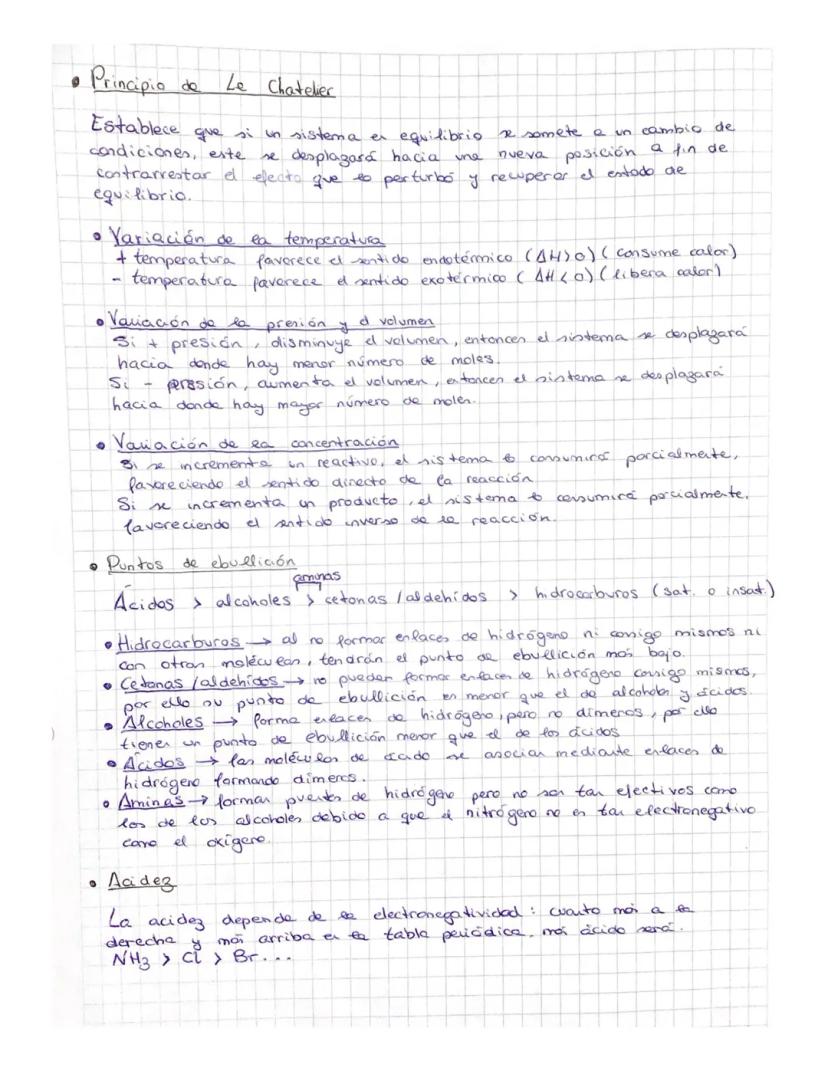 • Principio de Le Chatelier
Establece que si un sistema en equilibrio se somete a un cambio de
condiciones, este se desplazará hacia una nueva posición a fin de
contrarrestar el efecto que lo perturbó y recuperar el estado de
equilibrio.
• Variación de la temperatura
+ temperatura favorece el sentido endotérmico (ΔH>0) (consume calor)
- temperatura favorece el sentido exotérmico (ΔH<0) (libera calor)
• Variación de la presión y el volumen
Si + presión, disminuye el volumen, entonces el sistema se desplazará
hacia donde hay menor número de moles.
Si - presión, aumenta el volumen, entonces el sistema se desplazará
hacia donde hay mayor número de moles.
• Variación de la concentración
Si se incrementa un reactivo, el sistema lo consumirá parcialmente,
favoreciendo el sentido directo de la reacción
Si se incrementa un producto, el sistema lo consumirá parcialmente,
favoreciendo el sentido inverso de la reacción.
• Puntos de ebullición
aminas
Ácidos > alcoholes > cetonas / aldehídos > hidrocarburos (sat. o insat.)
• Hidrocarburos → al no formar enlaces de hidrógeno ni consigo mismos ni
con otras moléculas, tendrán el punto de ebullición más bajo.
• Cetonas / aldehídos → no pueden formar enlaces de hidrógeno consigo mismos,
por ello su punto de ebullición es menor que el de alcoholes y ácidos.
• Alcoholes → forma enlaces de hidrógeno, pero no dímeros, por ello
tienen un punto de ebullición menor que el de los ácidos
• Ácidos → las moléculas de ácido se asocian mediante enlaces de
hidrógeno formando dímeros.
• Aminas → forman puentes de hidrógeno pero no son tan efectivos como
los de los alcoholes debido a que el nitrógeno no es tan electronegativo
como el oxígeno.
• Acidez
La acidez depende de la electronegatividad: cuanto más a la
derecha y más arriba en la tabla periódica, más ácido será.
NH3 > Cl > Br...